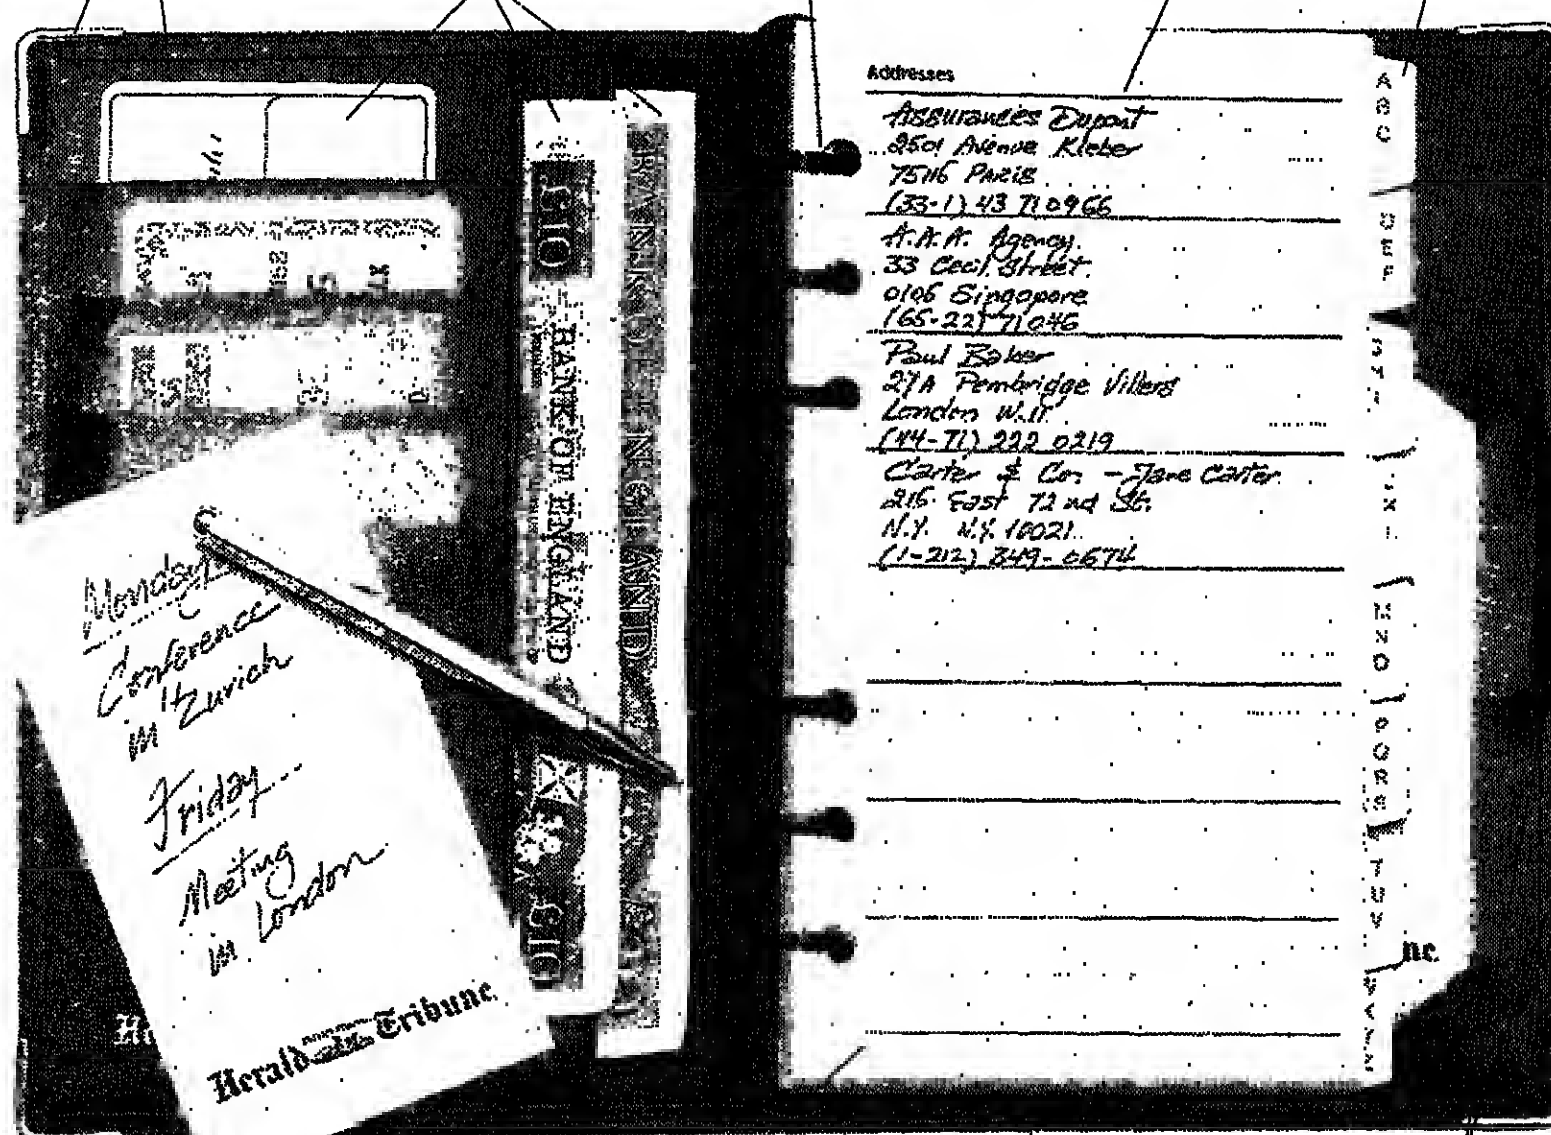 Monday
Conference
in Zurich
Friday
Meeting
in London
Herald Tribune
£10
BANK OF ENGLAND
£10
BANK OF ENGLAND
Addresses
Assurances Dupont
2501 Avenue Kleber
75116 Paris
(33-1) 43 710966
A.A.A. Agency
33 Cecil Street
0106 Singapore
(65-22) 71046
Paul Baker
27A Pembridge Villers
London W.11
(44-71) 222 0219
Carter & Co. - Jane Carter
215 East 72nd St.
N.Y. N.Y. 10021
(1-212) 349-0674
A B C
D E F
M N O
P Q R S
T U V
ne.